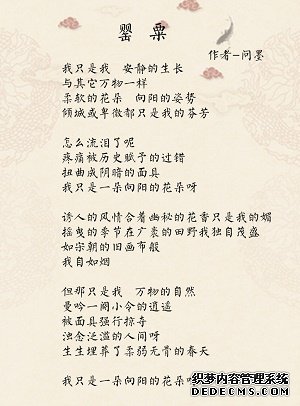 罂 粟
作者-问墨
我只是我 安静的生长
与其它万物一样
柔软的花朵 向阳的姿势
倾城或卑微都只是我的芬芳
怎么流泪了呢
疼痛被历史赋予的过错
扭曲成阴暗的面具
我只是一朵向阳的花朵呀
诱人的风情含着幽秘的花香只是我的媚
摇曳的季节在广袤的田野我独自茂盛
如宋朝的旧画布般
我自如烟
但那只是我 万物的自然
曼吟一阙小令的逍遥
被面具强行掠夺
浊念泛滥的人间呀
生生埋葬了柔弱无骨的春天
我只是一朵向阳的花朵
织梦内容管理系统
DEDECMS.COM